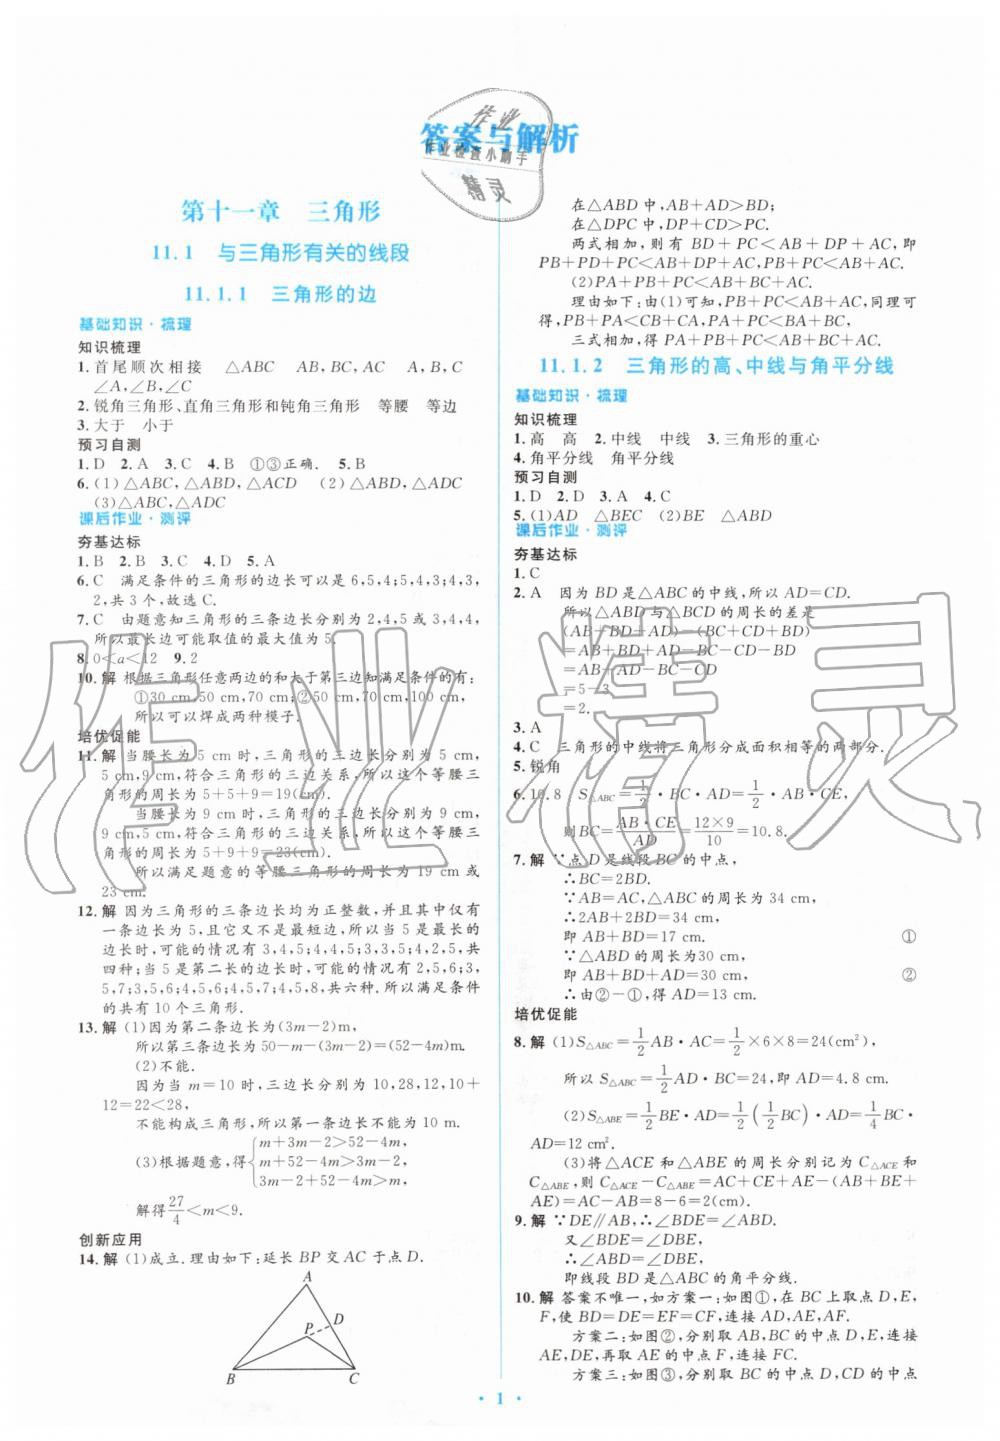 答案与解析
作业
作业检查小助手
精灵
第十一章 三角形
11.1 与三角形有关的线段
11.1.1 三角形的边
基础知识·梳理
知识梳理
1.首尾顺次相接 △ABC AB,BC,AC
∠A,∠B,∠C
2.锐角三角形、直角三角形和钝角三角形 等腰 等边
3.大于 小于
预习自测
1.D 2.A 3.C 4.B ①③正确. 5.B
6.(1)△ABC,△ABD,△ACD (2)△ABC,△ABD
(3)△ABC,△ADC
课后作业·测评
夯基达标
1.B 2.B 3.C 4.D 5.A
6.C 满足条件的三角形的边长可以是6,5,4;5,4,3;4,3,
2,共3个,故选C.
7.C 由题意知三角形的三条边长分别为2,4,5或3,4,5,
所以最长边可能取值的最大值为5.
8.0<a<12 9.2
10.解 根据三角形任意两边的和大于第三边知满足条件的有:
①30 cm,50 cm,70 cm;②50 cm,70 cm,100 cm,
所以可以焊成两种模子.
培优促能
11.解 当腰长为5 cm时,三角形的三边长分别为5 cm,
5 cm,9 cm,符合三角形的三边关系,所以这个等腰三
角形的周长为5+5+9=19(cm).
当腰长为9 cm时,三角形的三边长分别为5 cm,
9 cm,9 cm,符合三角形的三边关系,所以这个等腰三
角形的周长为5+9+9=23(cm).
所以满足题意的等腰三角形的周长为19 cm或
23 cm.
12.解 因为三角形的三条边长均为正整数,并且其中仅有
一条边长为5,且它又不是最短边,所以当5是最长的
边长时,可能的情况有3,4,5;4,4,5;3,3,5;4,2,5,共
四种;当5是第二长的边长时,可能的情况有2,5,6;3,
5,7;3,5,6;4,5,6;4,5,7;4,5,8,共六种.所以满足条件
的共有10个三角形.
13.解 (1)因为第二条边长为(3m-2)m,
所以第三条边长为50-m-(3m-2)=(52-4m)m.
(2)不能.
因为当m=10时,三边长分别为10,28,12,10+
12=22<28,
不能构成三角形,所以第一条边长不能为10 m.
(3)根据题意,得{m+3m-2>52-4m,
m+52-4m>3m-2,
3m-2+52-4m>m,
解得27/4<m<9.
创新应用
14.解 (1)成立.理由如下:延长BP交AC于点D.
A
P
D
B
C
在△ABD中,AB+AD>BD;
在△DPC中,DP+CD>PC.
两式相加,则有BD+PC<AB+DP+AC,即
PB+PD+PC<AB+DP+AC,则PB+PC<AB+AC.
(2)PA+PB+PC<AB+BC+AC.
理由如下:由(1)可知,PB+PC<AB+AC,同理可
得,PB+PA<CB+CA,PA+PC<BA+BC,
三式相加,得PA+PB+PC<AB+BC+AC.
11.1.2 三角形的高、中线与角平分线
基础知识·梳理
知识梳理
1.高 高 2.中线 中线 3.三角形的重心
4.角平分线 角平分线
预习自测
1.D 2.D 3.A 4.C
5.(1)AD △BEC (2)BE △ABD
课后作业·测评
夯基达标
1.C
2.A 因为BD是△ABC的中线,所以AD=CD.
所以△ABD与△BCD的周长的差是
(AB+BD+AD)-(BC+BD+CD)
=AB+BD+AD-BC-CD-BD
=AB+AD-BC-CD
=5-3
=2.
3.A
4.C 三角形的中线将三角形分成面积相等的两部分.
5.锐角
6.10.8 S△ABC=1/2·BC·AD=1/2·AB·CE,
则BC=AB·CE/AD=12×9/10=10.8.
7.解 ∵点D是线段BC的中点,
∴BC=2BD.
∵AB=AC,△ABC的周长为34 cm,
∴2AB+2BD=34 cm,
即AB+BD=17 cm. ①
∵△ABD的周长为30 cm,
即AB+BD+AD=30 cm, ②
∴由②-①,得AD=13 cm.
培优促能
8.解 (1)S△ABC=1/2AB·AC=1/2×6×8=24(cm²),
所以S△ABC=1/2AD·BC=24,即AD=4.8 cm.
(2)S△ABE=1/2BE·AD=1/2(1/2BC)·AD=1/4BC·
AD=12 cm².
(3)将△ACE和△ABE的周长分别记为C△ACE和
C△ABE,则C△ACE-C△ABE=AC+CE+AE-(AB+BE+
AE)=AC-AB=8-6=2(cm).
9.解 ∵DE∥AB,∴∠BDE=∠ABD.
又∠BDE=∠DBE,
∴∠ABD=∠DBE,
即线段BD是△ABC的角平分线.
10.解 答案不唯一,如方案一:如图①,在BC上取点D,E,
F,使BD=DE=EF=CF,连接AD,AE,AF.
方案二:如图②,分别取AB,BC的中点D,E,连接
AE,DE,再取AE的中点F,连接FC.
方案三:如图③,分别取AB的中点D,CD的中点
· 1 ·
作业精灵